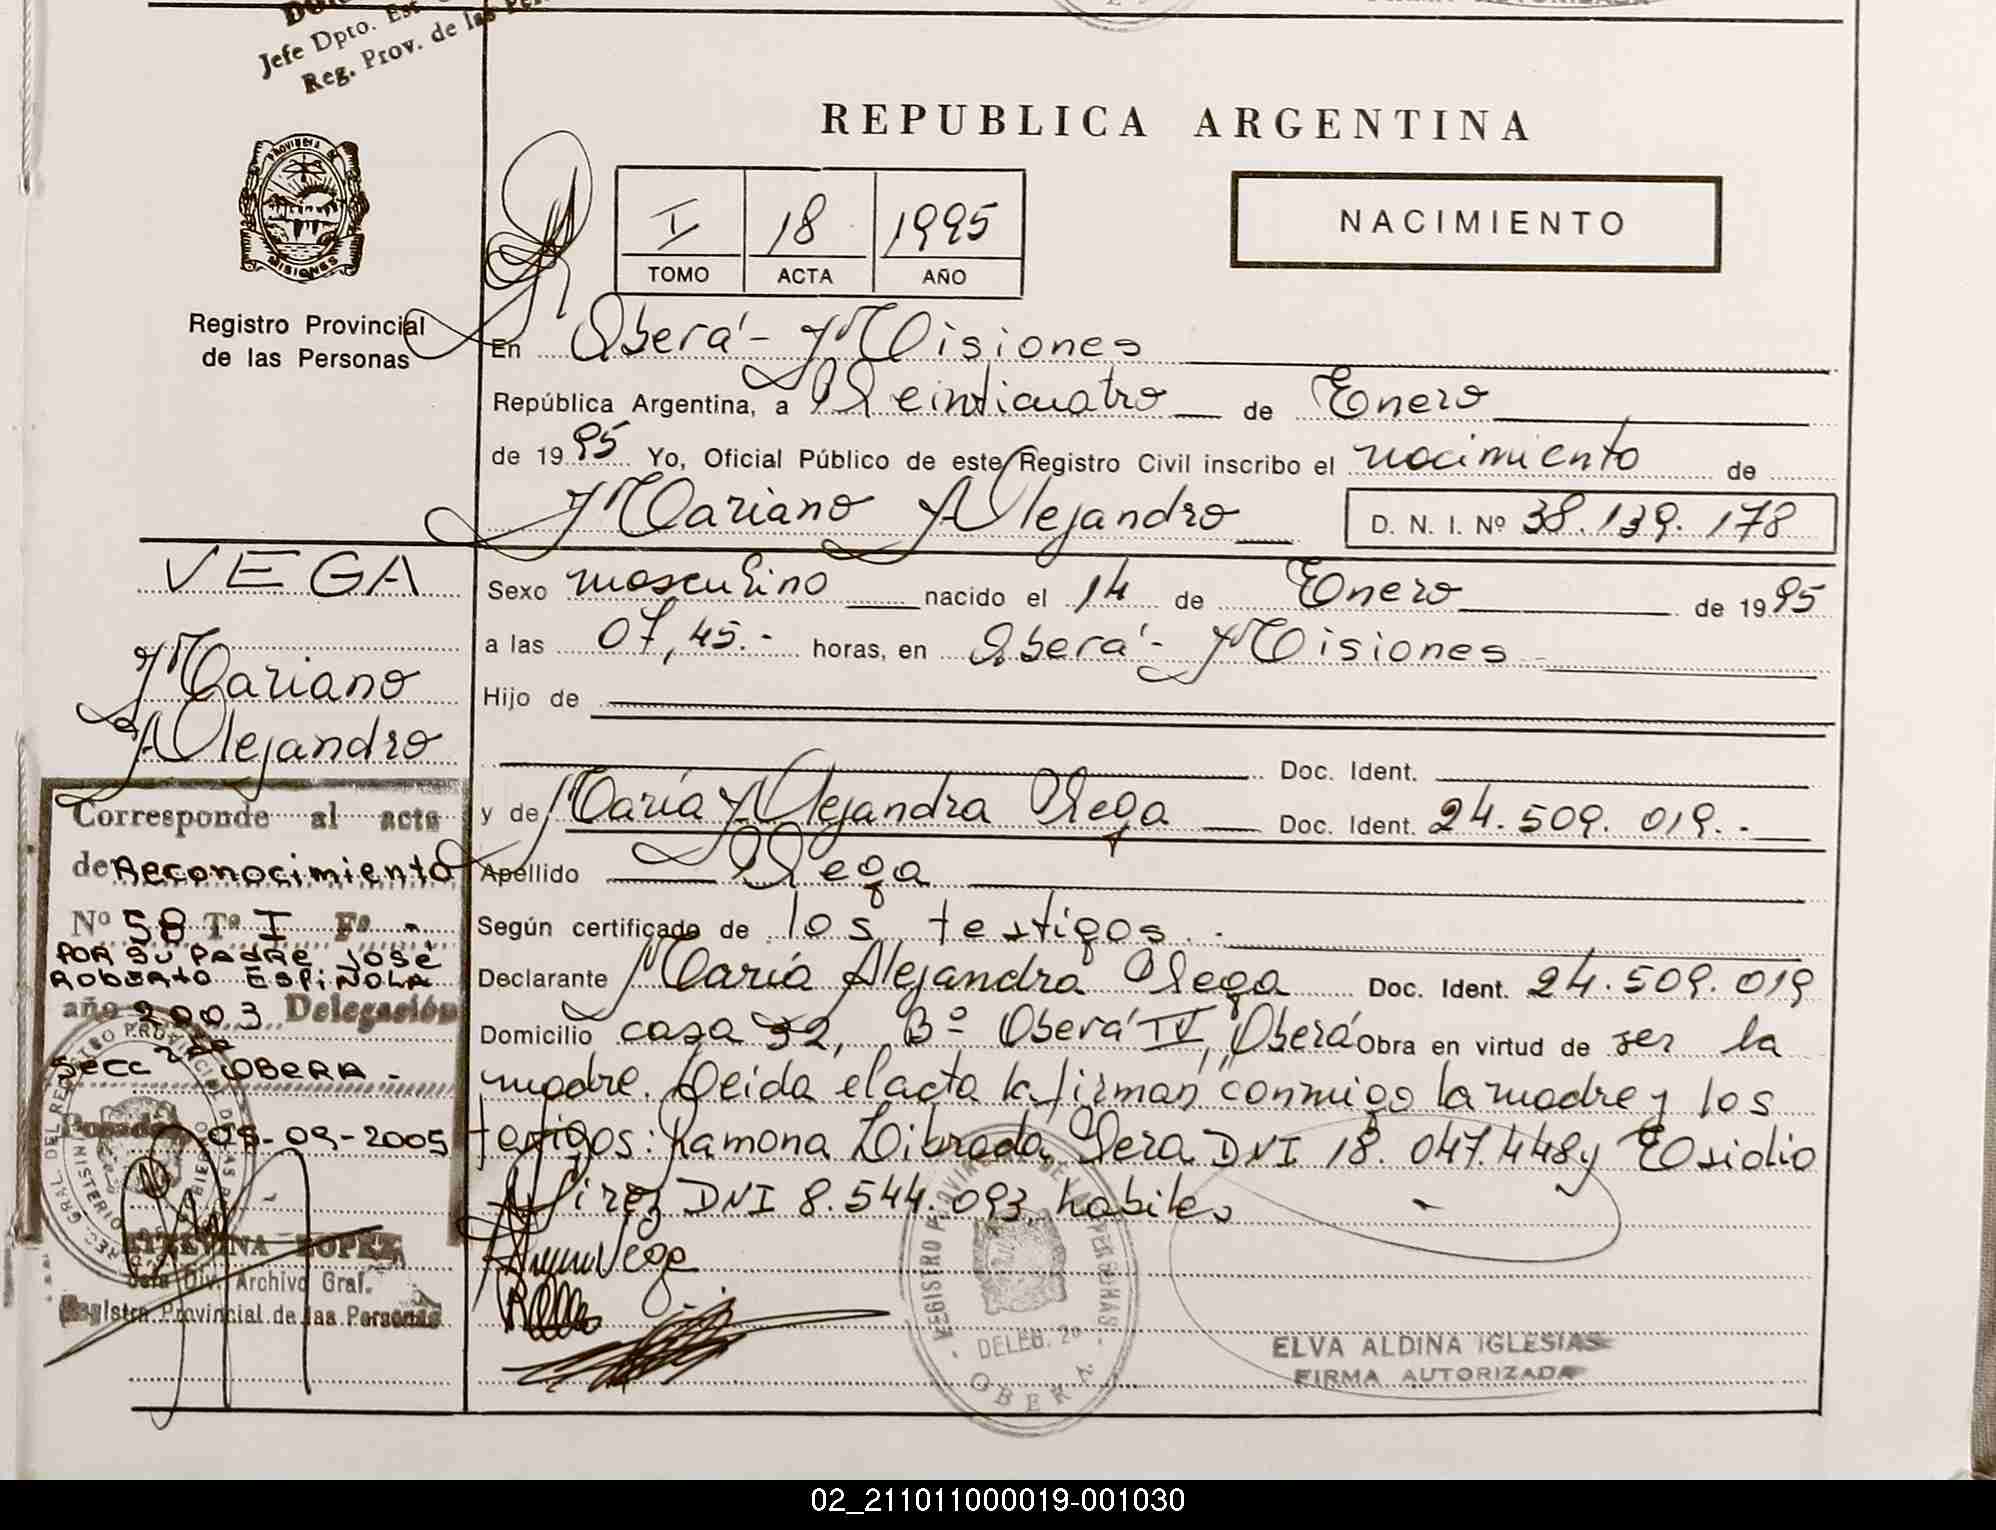 Jefe Dpto. Est.
Reg. Prov. de las Per
REPUBLICA ARGENTINA
PROVINCIA DE
MISIONES
I 18 1995
TOMO ACTA AÑO
NACIMIENTO
Registro Provincial
de las Personas
En Oberá - Misiones
República Argentina, a Veinticuatro de Enero
de 1995 Yo, Oficial Público de este Registro Civil inscribo el nacimiento de
Mariano Alejandro D. N. I. Nº 38.139.178
VEGA
Mariano
Alejandro
Sexo masculino nacido el 14 de Enero de 1995
a las 07,45.- horas, en Oberá - Misiones
Hijo de
Doc. Ident.
y de María Alejandra Vega Doc. Ident. 24.509.019.-
Apellido Vega
Según certificado de los testigos.-
Declarante María Alejandra Vega Doc. Ident. 24.509.019
Domicilio casa 32, Bº Oberá IV, Oberá Obra en virtud de ser la
madre. Leida el acta la firman conmigo la madre y los
testigos: Ramona Librada Vera DNI 18.047.448 y Elsidio
Pirez DNI 8.544.093, habiles
Corresponde al acta
de Reconocimiento
Nº 58 Tº I Fº -
POR SU PADRE JOSÉ
ROBERTO ESPIÑOLA
año 2003 Delegación
Secc 2da OBERA -
Posadas, 05-09-2005
LOPEZ
Jefe Div. Archivo Gral.
Registro Provincial de las Personas
Vega
REGISTRO PROVINCIAL DE LAS PERSONAS
DELEG. 2ª
OBERA
ELVA ALDINA IGLESIAS
FIRMA AUTORIZADA
02_211011000019-001030